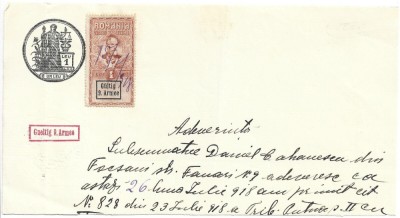 ROMANIA
1
Gültig
9. Armee
LEU
1
Gueltig 9. Armee
Adeverință
Subsemnatul Daniel Cahanescu din
Focsani str. Fanari № 9 adeveresc ca
astăzi 26 luna Iulie 918 am primit cit
№ 828 din 23 Iulie 918 a Trib. Putna s. II cu